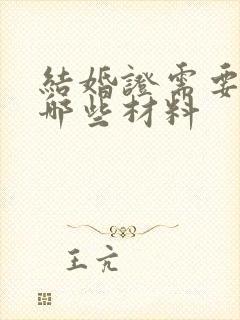 結婚證需要
哪些材料
王亢